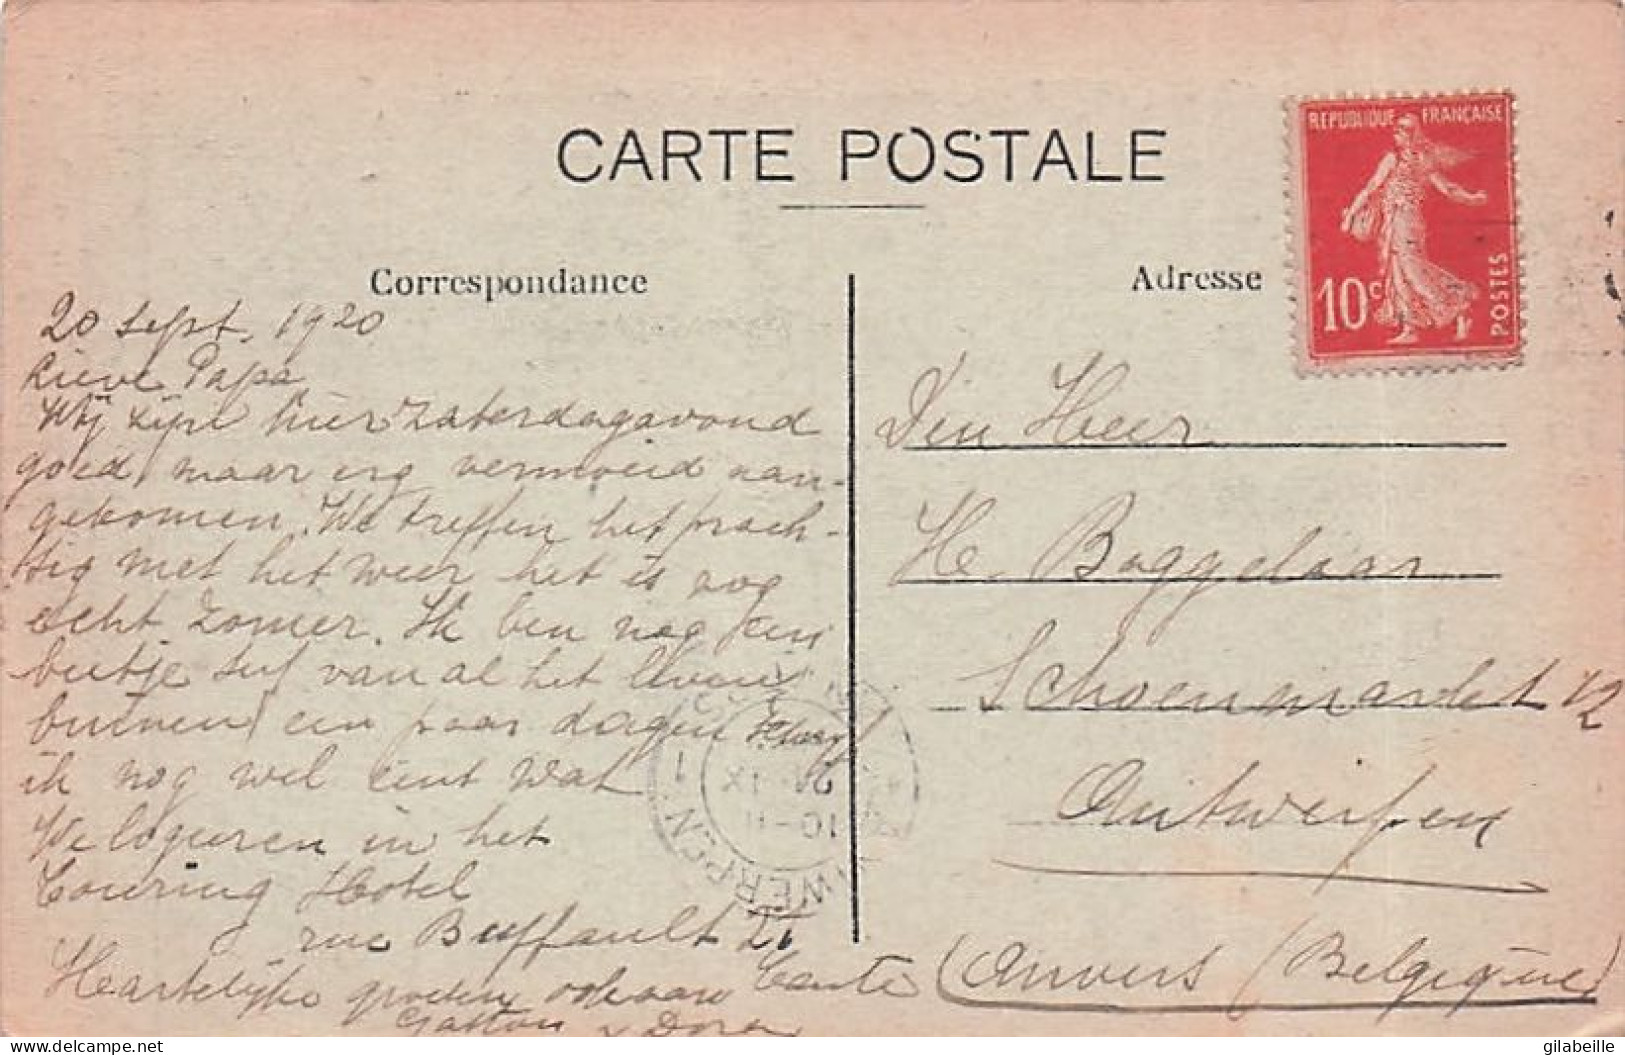 CARTE POSTALE
REPUBLIQUE FRANÇAISE
10c
POSTES
Correspondance
Adresse
20 sept. 1920
Lieve Papa
Wij zijn hier zaterdagavond
goed, maar erg vermoeid aan-
gekomen. We treffen het prach-
tig met het weer het is nog
echt zomer. Ik ben nog een
beetje suf van al het leven
buiten, een paar dagen
ik nog wel eint wat
We logeeren in het
Touring Hotel
rue Buffault 21
Hartelijke groeten ook aan Tante
Gaston & Dora
Den Heer
H. Boggelaar
Schoenmarkt 12
Antwerpen
(Anvers (Belgique)
WERPEN 1
10-11
gilabeille